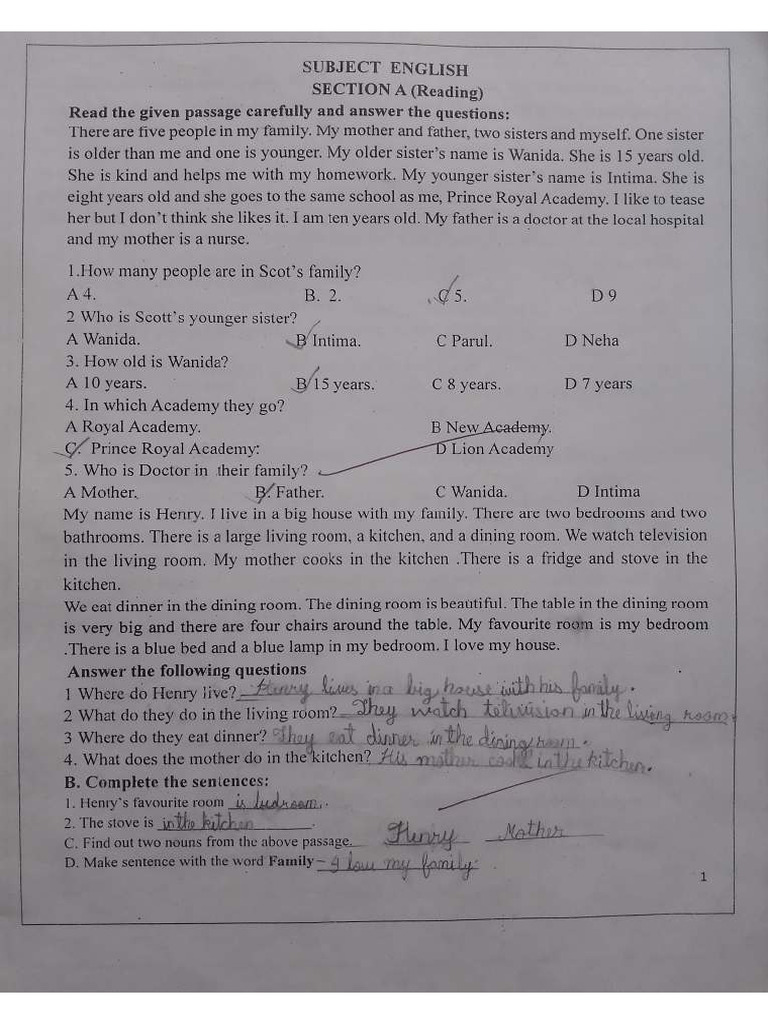 SUBJECT ENGLISH
SECTION A (Reading)
Read the given passage carefully and answer the questions:
There are five people in my family. My mother and father, two sisters and myself. One sister
is older than me and one is younger. My older sister's name is Wanida. She is 15 years old.
She is kind and helps me with my homework. My younger sister's name is Intima. She is
eight years old and she goes to the same school as me, Prince Royal Academy. I like to tease
her but I don't think she likes it. I am ten years old. My father is a doctor at the local hospital
and my mother is a nurse.
1.How many people are in Scot's family?
A 4. B. 2. C 5. D 9
2 Who is Scott's younger sister?
A Wanida. B Intima. C Parul. D Neha
3. How old is Wanida?
A 10 years. B 15 years. C 8 years. D 7 years
4. In which Academy they go?
A Royal Academy. B New Academy.
C. Prince Royal Academy: D Lion Academy
5. Who is Doctor in their family?
A Mother. B. Father. C Wanida. D Intima
My name is Henry. I live in a big house with my family. There are two bedrooms and two
bathrooms. There is a large living room, a kitchen, and a dining room. We watch television
in the living room. My mother cooks in the kitchen .There is a fridge and stove in the
kitchen.
We eat dinner in the dining room. The dining room is beautiful. The table in the dining room
is very big and there are four chairs around the table. My favourite room is my bedroom
.There is a blue bed and a blue lamp in my bedroom. I love my house.
Answer the following questions
1 Where do Henry live? Henry lives in a big house with his family.
2 What do they do in the living room? They watch television in the living room.
3 Where do they eat dinner? They eat dinner in the dining room.
4. What does the mother do in the kitchen? His mother cooks in the kitchen.
B. Complete the sentences:
1. Henry's favourite room is bedroom.
2. The stove is in the kitchen.
C. Find out two nouns from the above passage. Henry Mother
D. Make sentence with the word Family– I love my family.
1